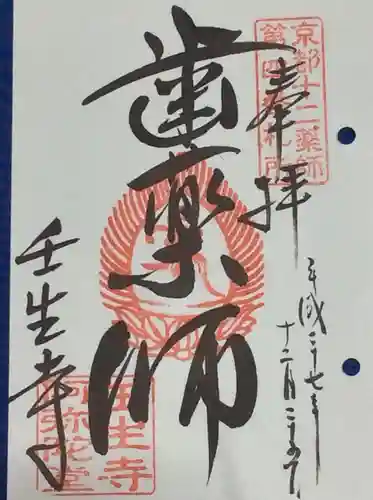 京都十二薬師
第四番札所
奉拝
平成二十七年
十二月二十九日
歯薬師
壬生寺
壬生寺
阿弥陀堂